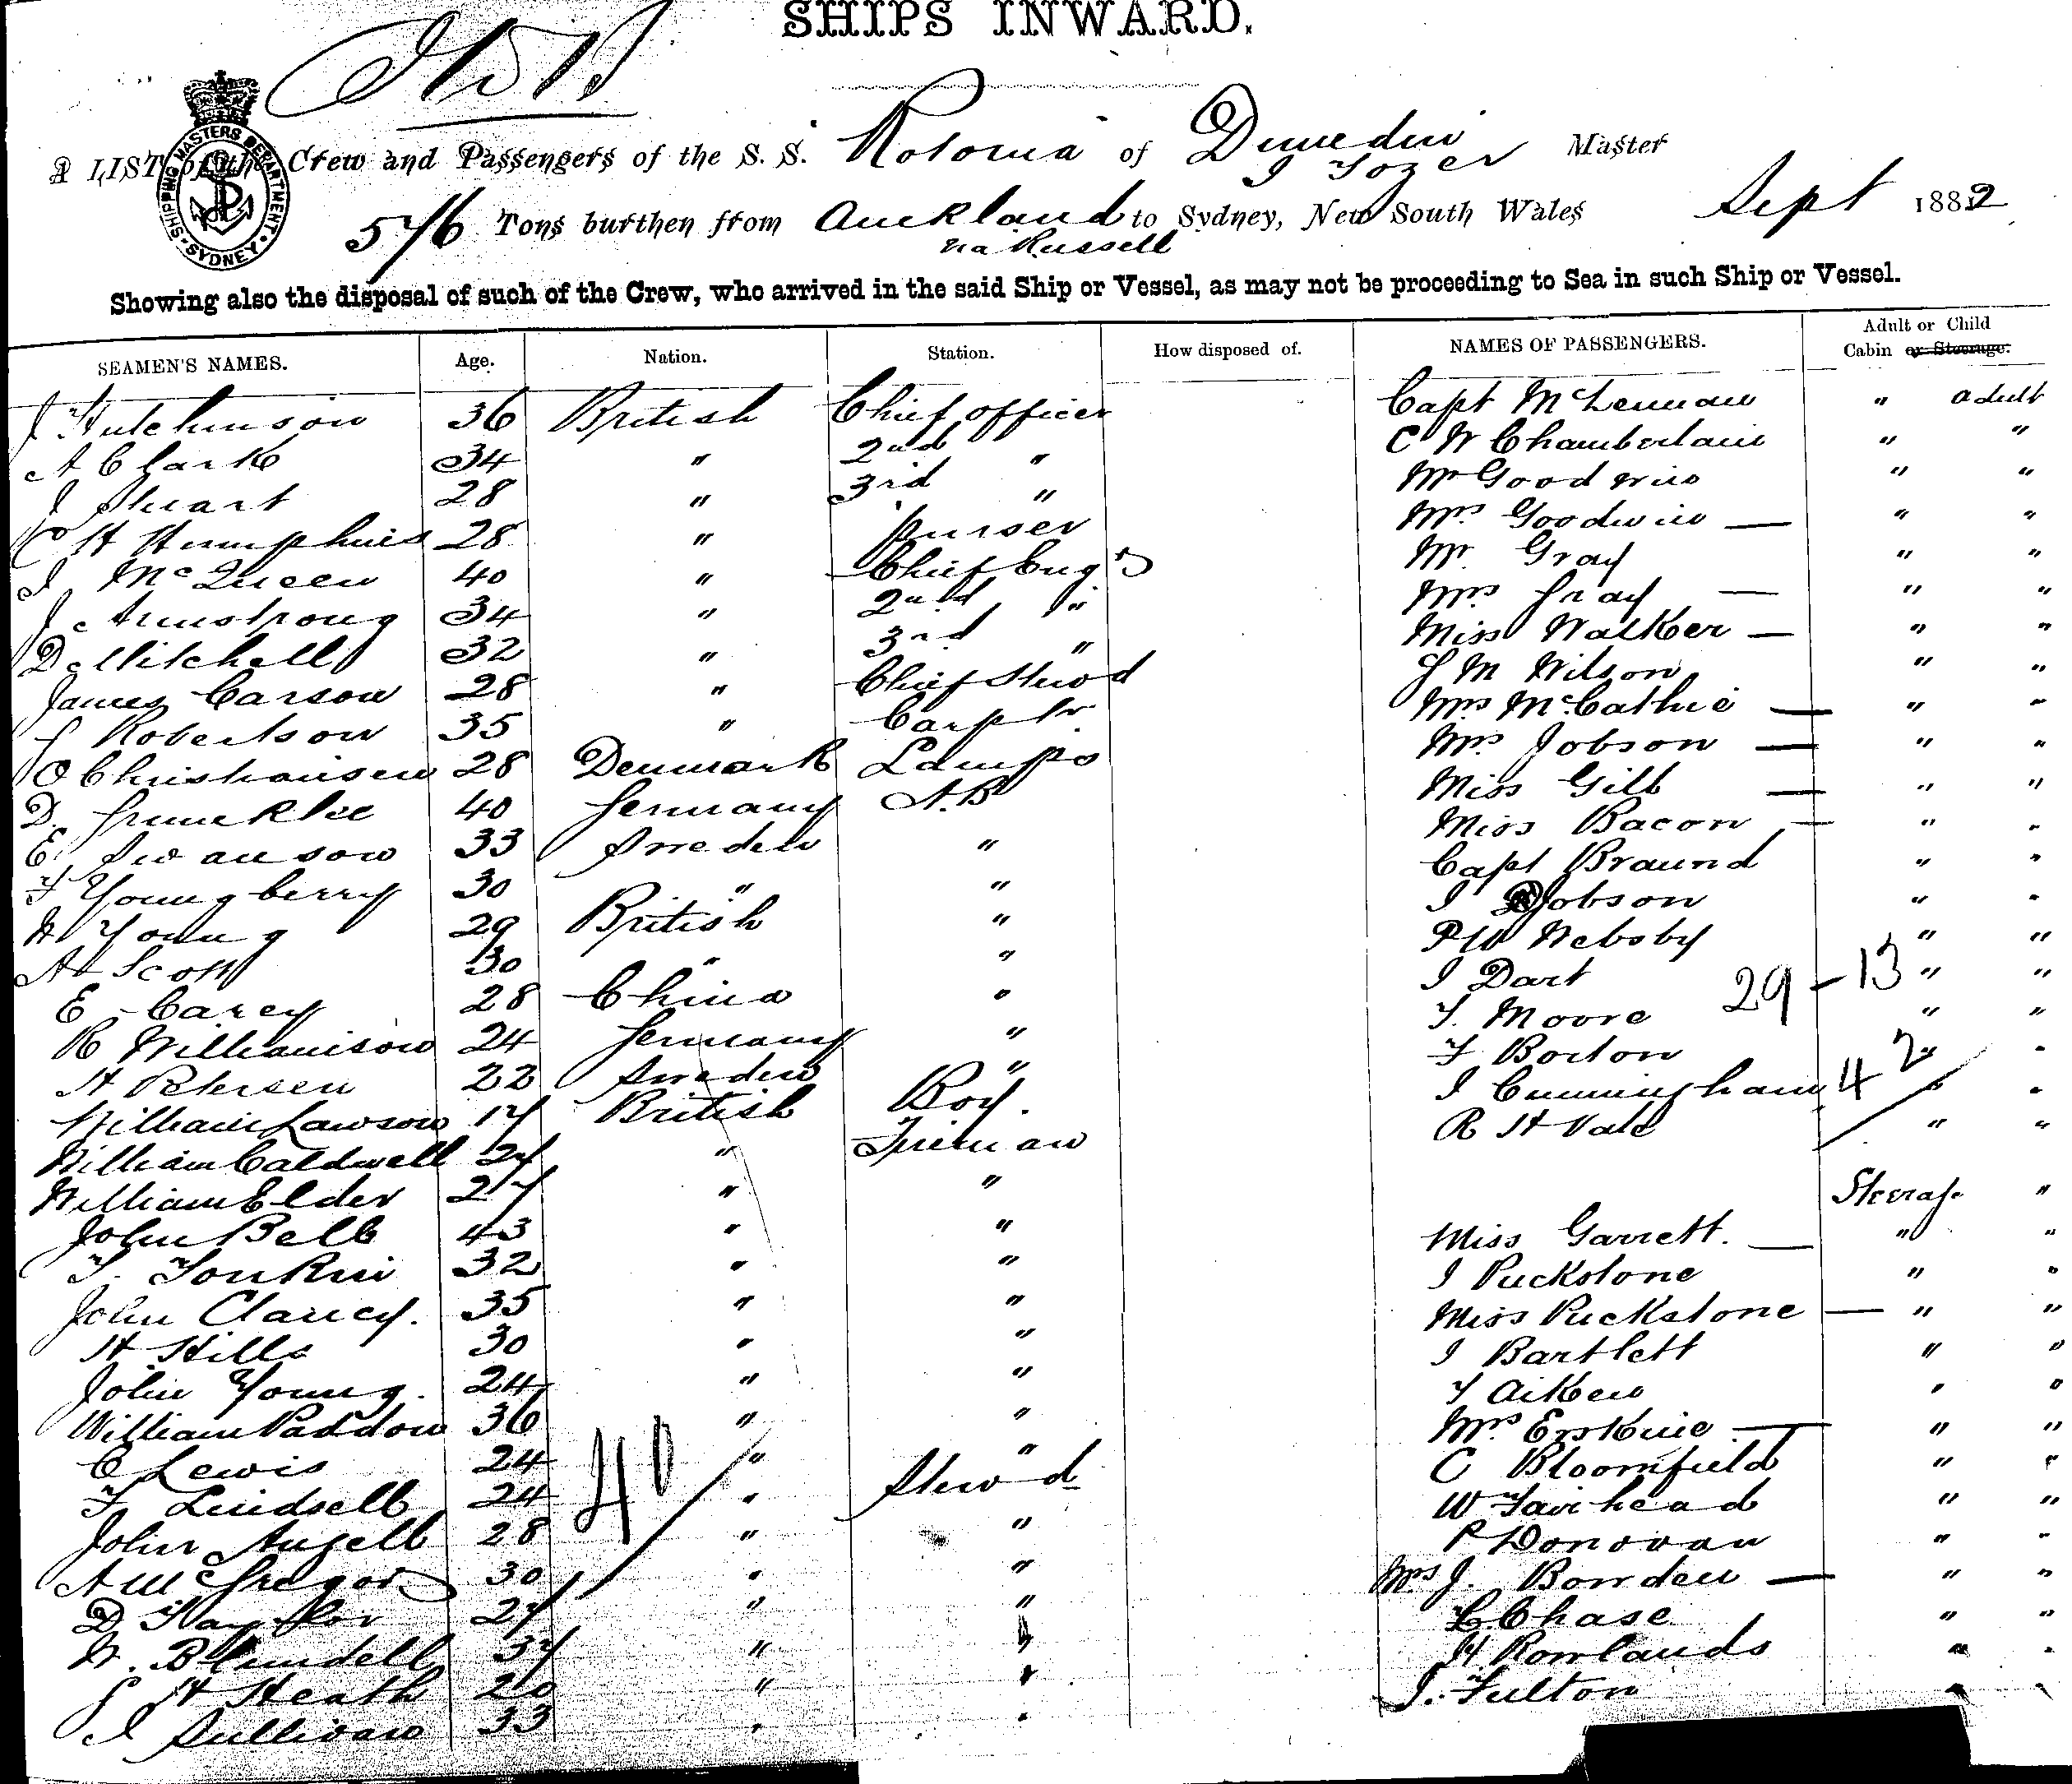 SHIPS INWARD.
A LIST of the Crew and Passengers of the S. S. Rotorua of Dunedin
J Tozer Master
576 Tons burthen from Auckland to Sydney, New South Wales Sept 1882
via Russell
SHIPPING MASTERS DEPARTMENT · SYDNEY ·
Showing also the disposal of such of the Crew, who arrived in the said Ship or Vessel, as may not be proceeding to Sea in such Ship or Vessel.
SEAMEN'S NAMES. Age. Nation. Station. How disposed of. NAMES OF PASSENGERS. Adult or Child
Cabin or Steerage.
J Hutchinson 36 British Chief officer Capt McLennan " adult
A Clark 34 " 2nd " C W Chamberlain " "
J Stuart 28 " 3rd " Mr Goodwin " "
C H Humphries 28 " purser Mrs Goodwin — " "
J McQueen 40 " Chief Engr Mr Gray " "
J Armstrong 34 " 2nd " Mrs Gray — " "
D Mitchell 32 " 3rd " Miss Walker — " "
James Carson 28 " Chief Stewd J M Wilson " "
J Robertson 35 " Carptr Mrs McCathie — " "
O Christiansen 28 Denmark Lamps Mrs Jobson — " "
D. 40 Germany A.B Miss Gill — " "
E Swanson 33 Sweden " Miss Bacon — " "
F Youngberry 30 " " Capt Braund " "
W Young 29 British " J Jobson " "
A Scott 30 " " P W Websby " "
E Carey 28 China " J Dart 29 - 13 " "
R Williamson 24 Germany " T. Moore " "
H Petersen 22 Sweden " F Borton " "
William Lawson 17 British Boy. J Cunningham 42 " "
William Caldwell 27 " Fireman R H Vale " "
William Elder 27 " " Steerage "
John Bell 43 " " Miss Garrett. — " "
T. Tonkin 32 " " J Puckstone " "
John Clancy. 35 " " Miss Puckstone — " "
H Hills 30 " " J Bartlett " "
John Young. 24 " " T Aiken " "
William Paddon 36 " " Mrs Erskine — " "
C Lewis 24 40 " " C Bloomfield " "
F Lindsell 24 " Stewd W Fairhead " "
John Angell 28 " " P Donovan " "
A McGregor 30 " " Mrs J. Bowden — " "
D 27 " " Chase " "
W. Blundell 37 " " H Rowlands " "
J H Heath 20 " " J. Fulton " "
J Sullivan 33 " "